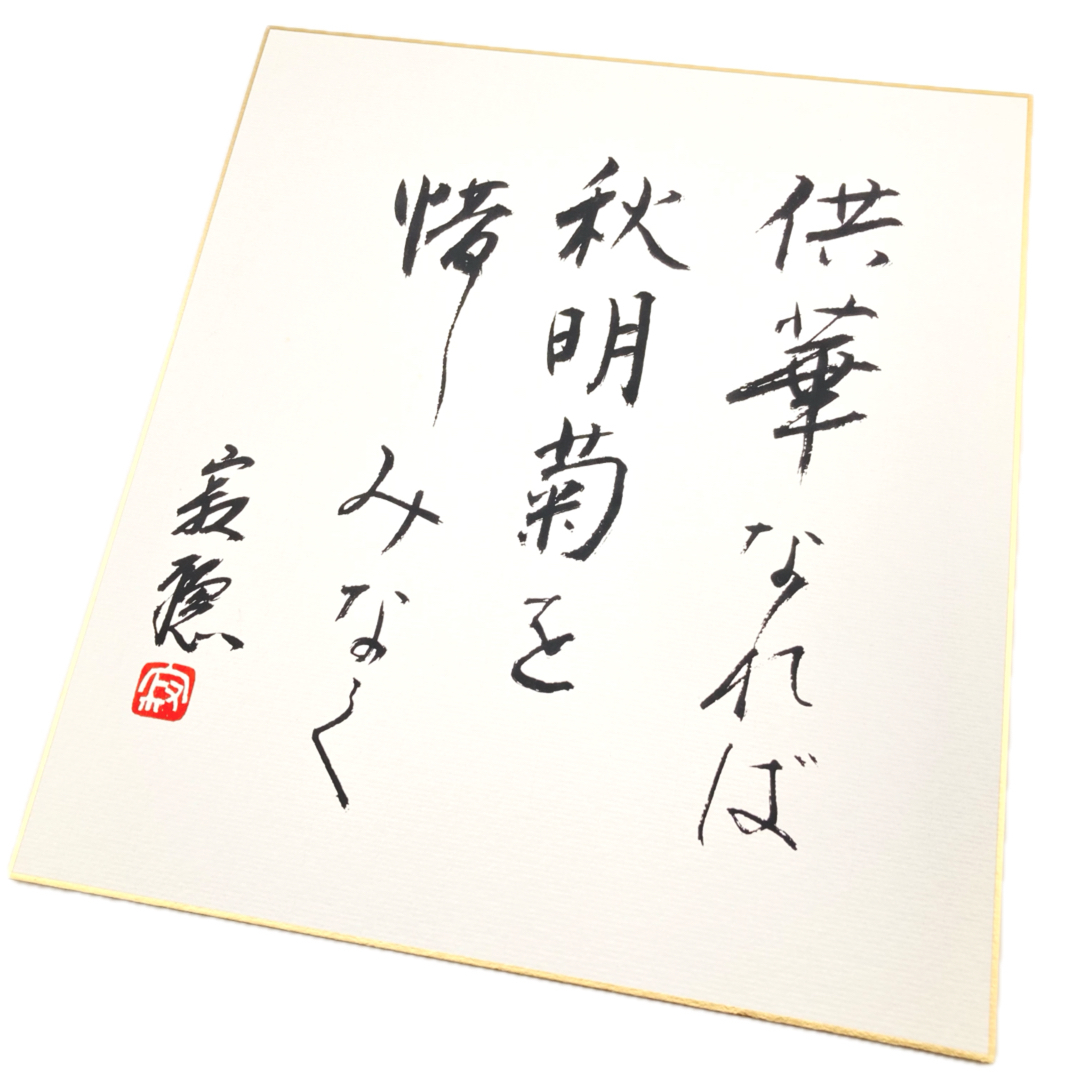 供華なれば
秋明菊を
惜しみなく
寂聴
寂